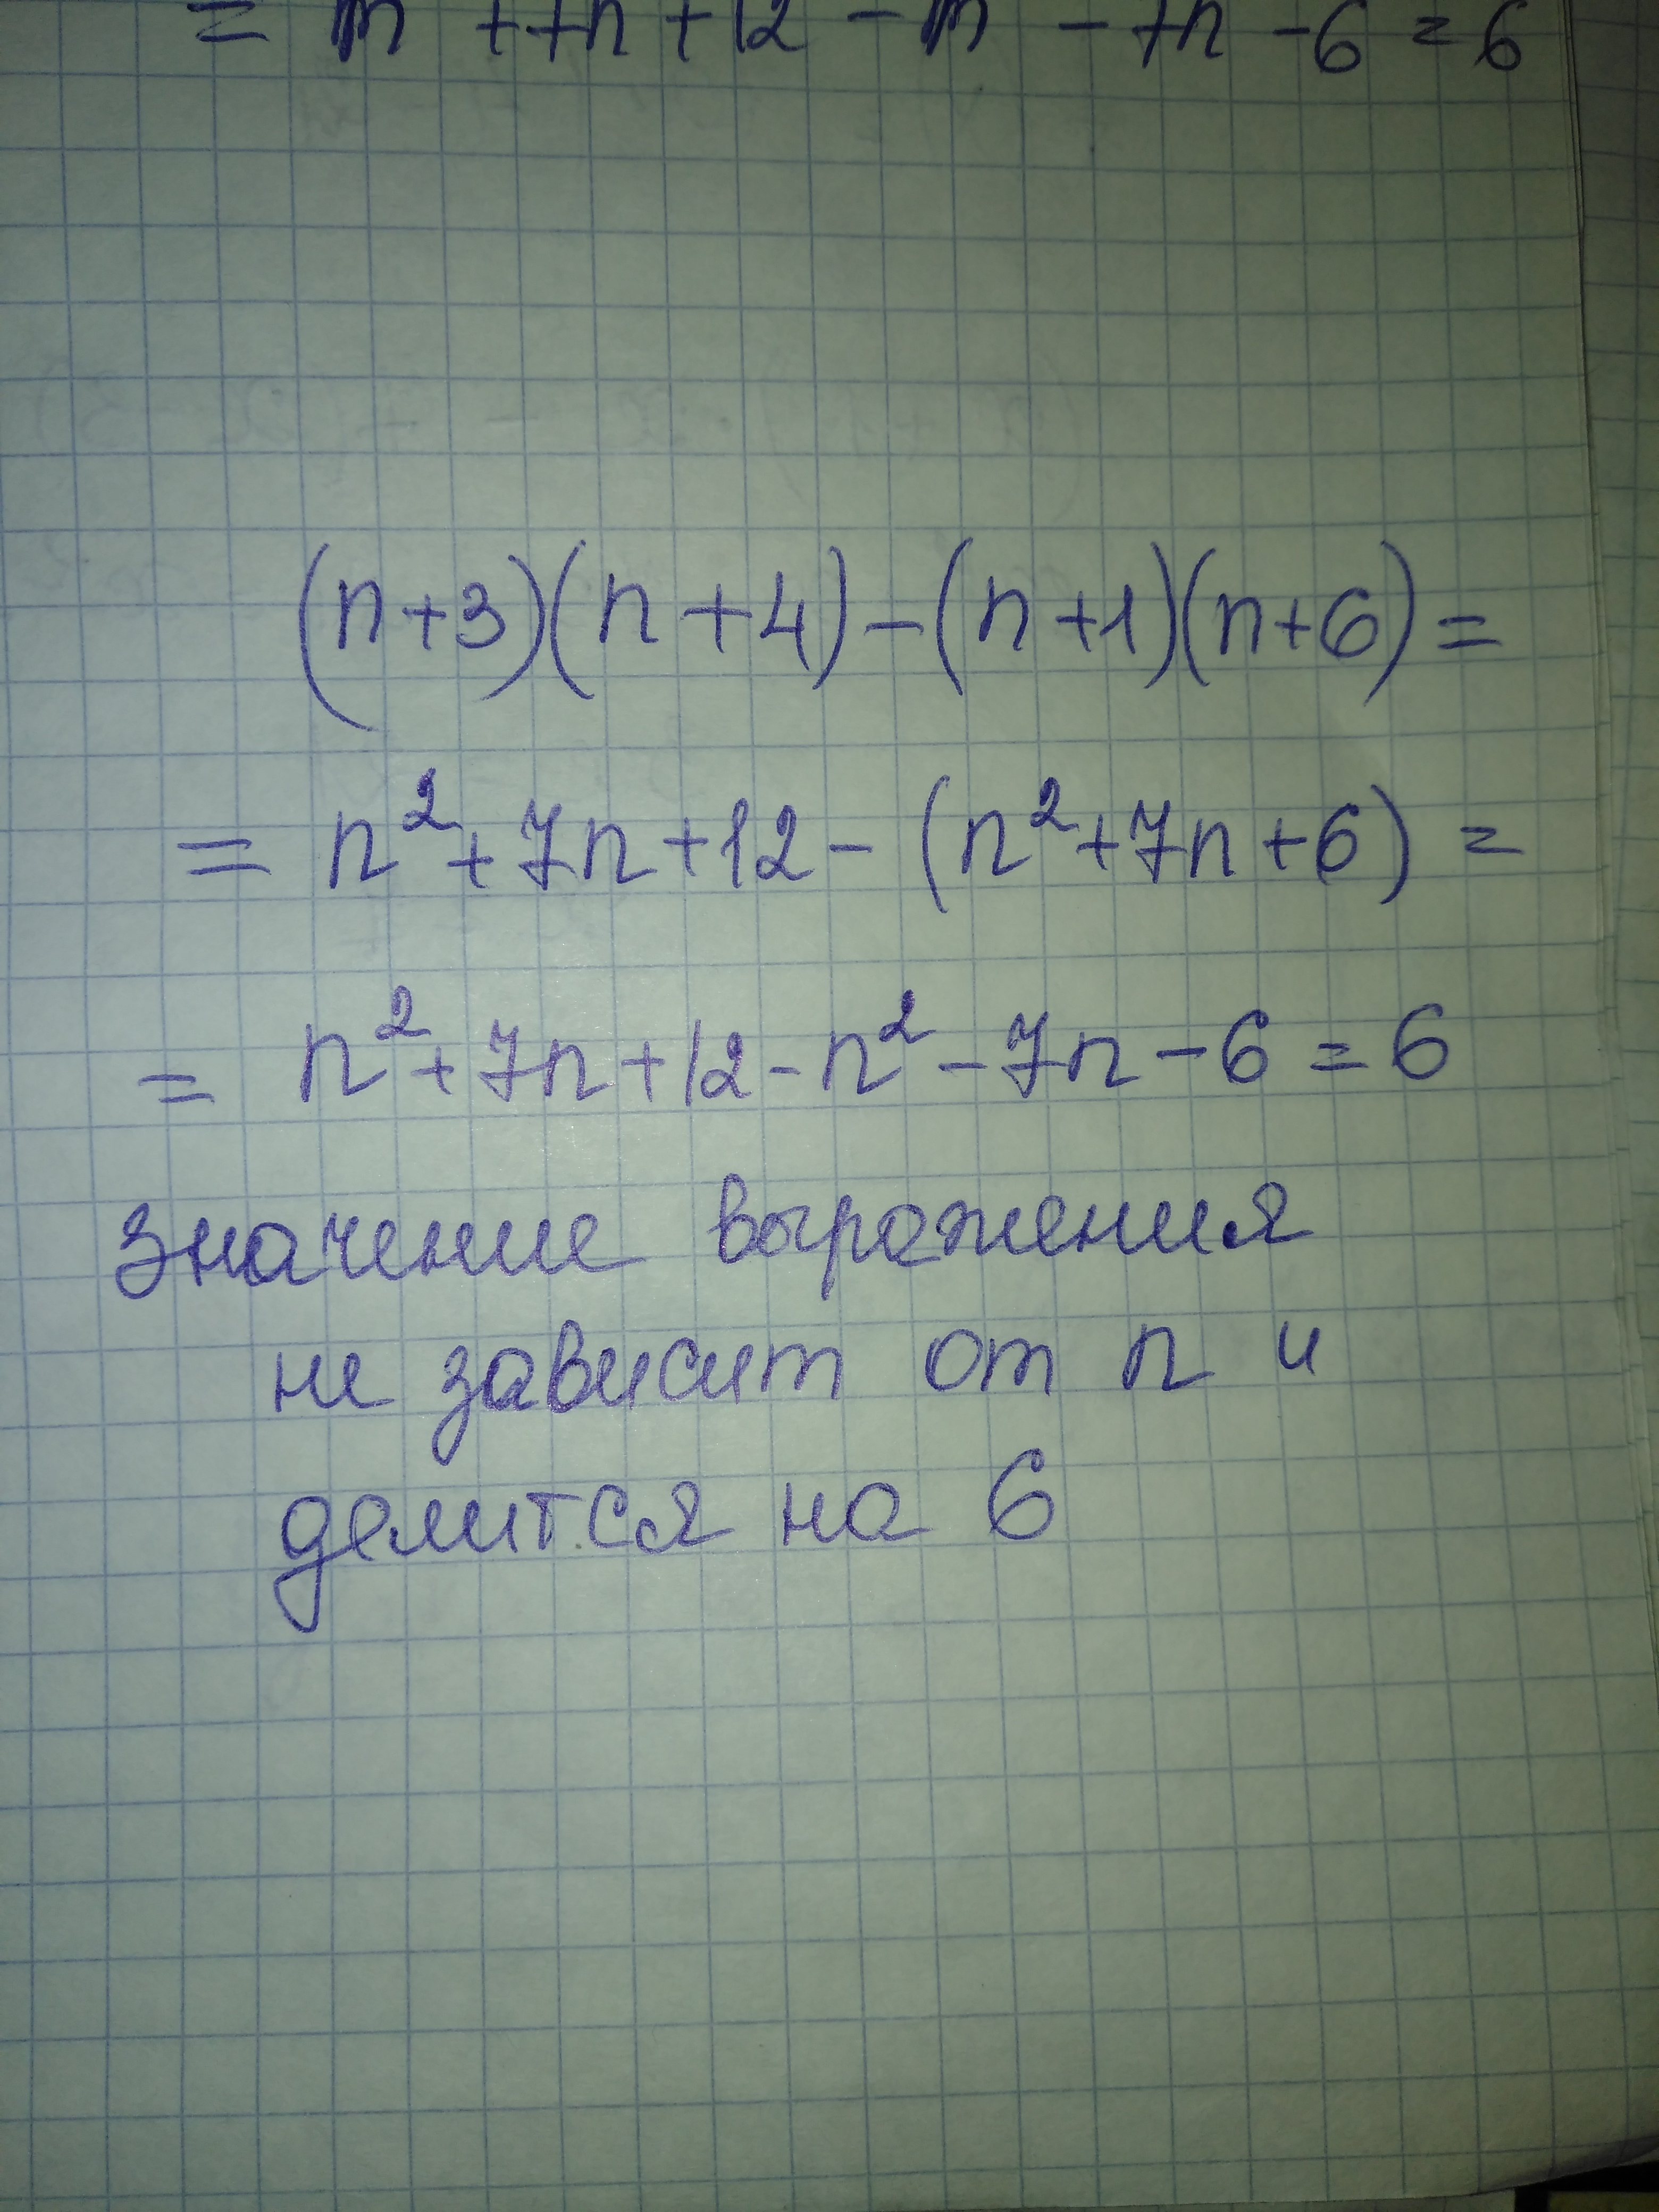 = n + 7n + 12 - n - 7n - 6 = 6
(n+3)(n+4)-(n+1)(n+6)=
= n²+7n+12-(n²+7n+6)=
= n²+7n+12-n²-7n-6=6
значение выражения
не зависит от n и
делится на 6